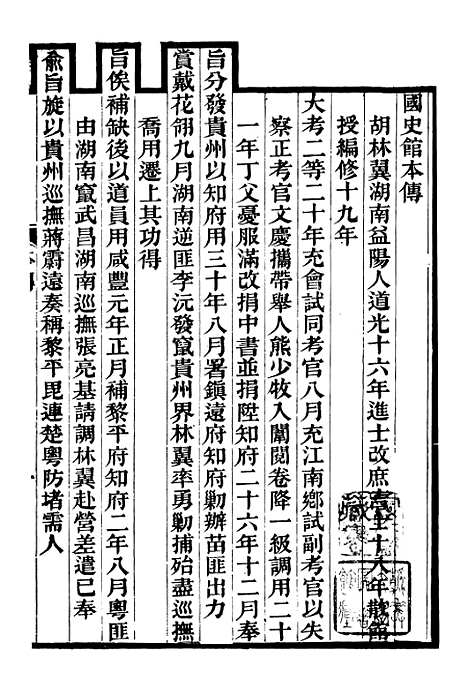 國史館本傳
胡林翼湖南益陽人道光十六年進士改庶吉士十八年散館
授編修十九年
大考二等二十年充會試同考官八月充江南鄉試副考官以失
察正考官文慶攜帶舉人熊少牧入闈閱卷降一級調用二十
一年丁父憂服滿改捐中書並捐陞知府二十六年十二月奉
旨分發貴州以知府用三十年八月署鎮遠府知府勦辦苗匪出力
賞戴花翎九月湖南逆匪李沅發竄貴州界林翼率勇勦捕殆盡巡撫
喬用遷上其功得
旨俟補缺後以道員用咸豐元年正月補黎平府知府二年八月粵匪
由湖南竄武昌湖南巡撫張亮基請調林翼赴營差遣已奉
俞旨旋以貴州巡撫蔣霨遠奏稱黎平毘連楚粵防堵需人